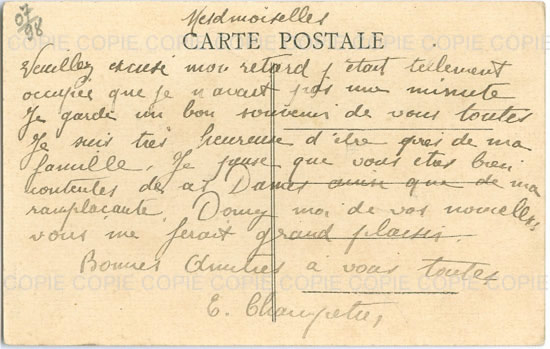 07/98
Mesdmoiselles
CARTE POSTALE
Veuillez excusé mon retard j'était tellement
occupée que je n'avait pas une minute
Je garde un bon souvenir de vous toutes
Je suis très heureuse d'être près de ma
famille, Je pense que vous etes bien
contentes de Dames ainsi que de ma
ramplaçante. Donnez moi de vos nouvelles
vous me ferait grand plaisir.
Bonnes Amitiés à vous toutes
E. Champetre,
COPIE COPIE COPIE COPIE COPIE COPIE